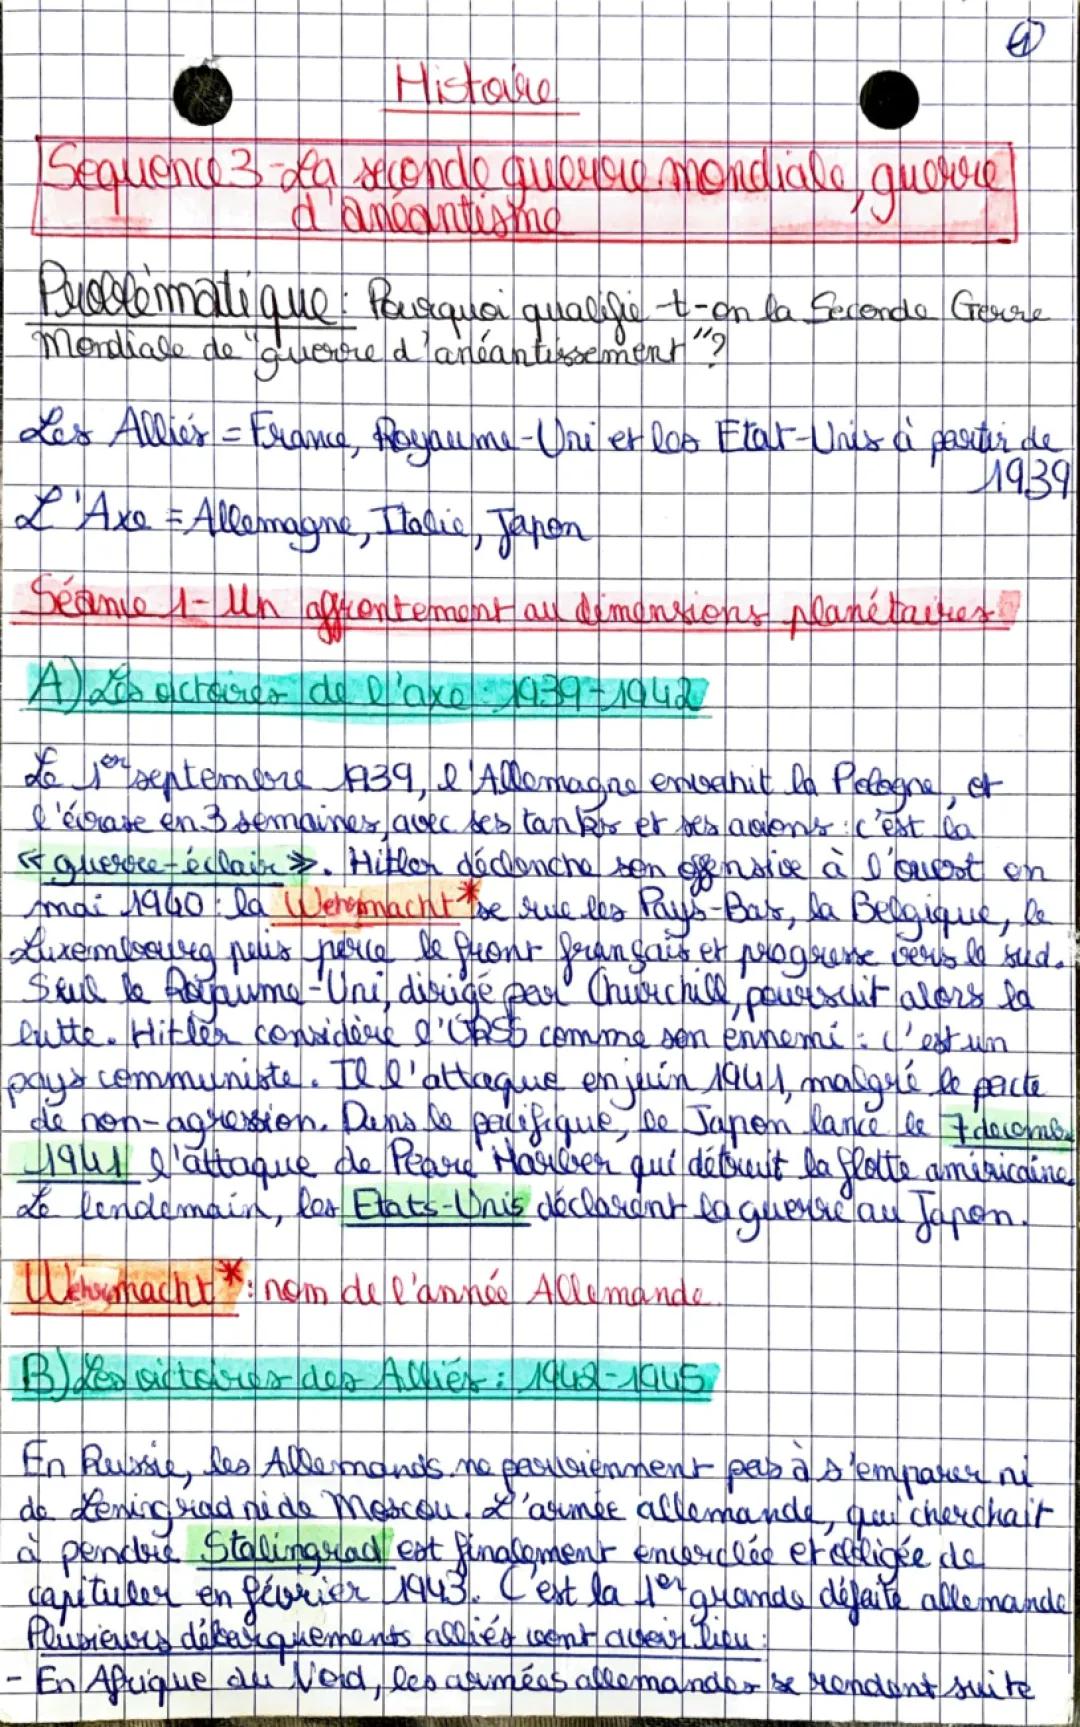 1
Histoire
Sequence 3 - La seconde guerre mondiale, guerre
d'anéantisme
Problématique : Pourquoi qualifie-t-on la Seconde Gerre
Mondiale de "guerre d'anéantissement"?
Les Alliés = France, Royaume-Uni et les Etat-Unis à partir de
1939
L'Axe = Allemagne, Italie, Japon
Séance 1 - Un affrontement au dimensions planétaires
A) Les victoires de l'axe : 1939-1942
Le 1er septembre 1939, l'Allemagne envahit la Pologne, et
l'écrase en 3 semaines, avec ses tanks et ses avions : c'est la
« guerre-éclair ». Hitler déclenche son offensive à l'ouest en
mai 1940 : la Wehrmacht* se rue les Pays-Bas, la Belgique, le
Luxembourg puis perce le front français et progresse vers le sud.
Seul le Royaume-Uni, dirigé par Churchill, poursuit alors la
lutte. Hitler considère l'URSS comme son ennemi : c'est un
pays communiste. Il l'attaque en juin 1941, malgré le pacte
de non-agression. Dans le pacifique, le Japon lance le 7 décembre
1941 l'attaque de Pearl Harber qui détruit la flotte américaine.
Le lendemain, les Etats-Unis déclarent la guerre au Japon.
Wehrmacht* : nom de l'année Allemande.
B) Les victoires des Alliés : 1942-1945
En Russie, les Allemands ne parviennent pas à s'emparer ni
de Leningrad ni de Moscou. L'armée allemande, qui cherchait
à pendre Stalingrad est finalement encerclée et obligée de
capituler en février 1943. C'est la 1er grande défaite allemande
Plusieurs débarquements alliés vont avoir lieu :
- En Afrique du Nord, les armées allemandes se rendent suite